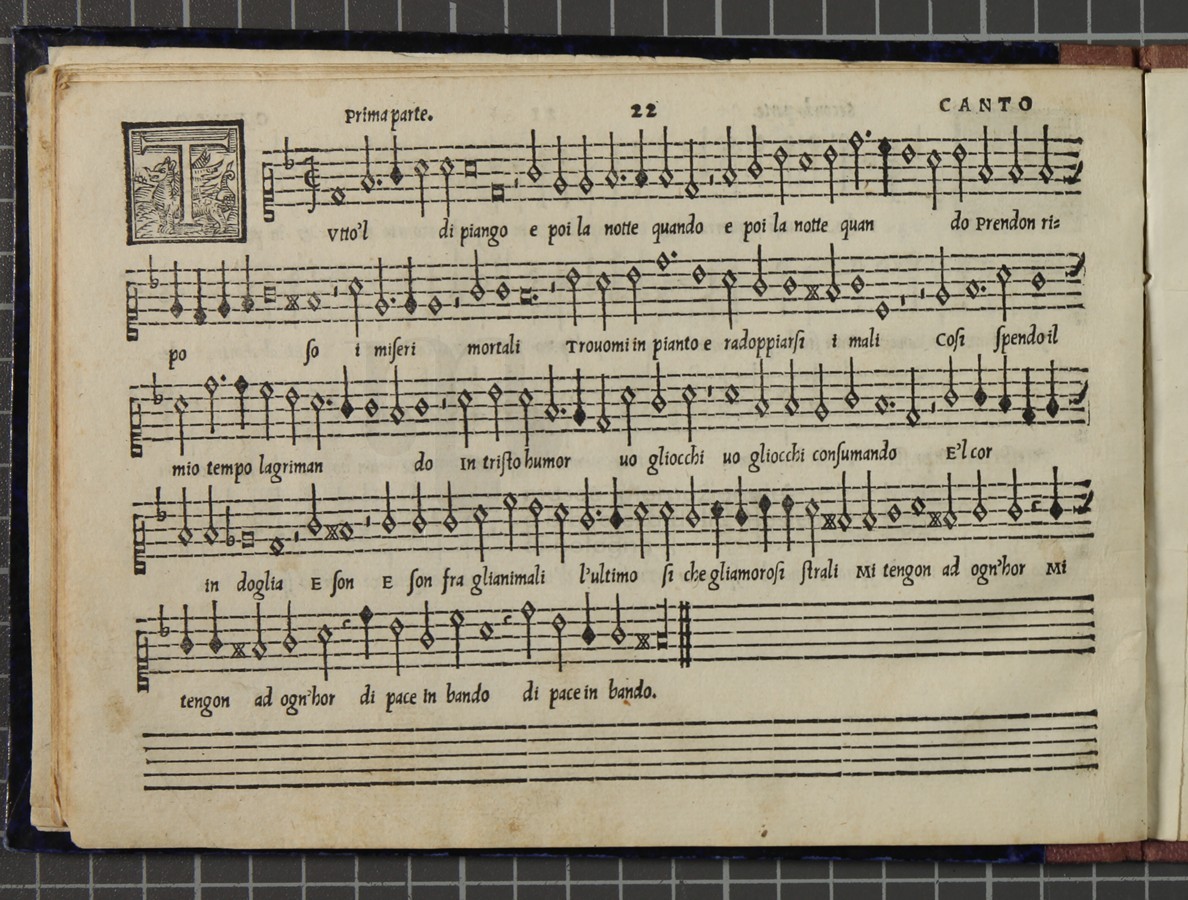 Prima parte. 22 CANTO
T
Vtto'l di piango e poi la notte quando e poi la notte quan do Prendon ri=
po ſo i miſeri mortali Trouomi in pianto e radoppiarſi i mali Coſi ſpendo il
mio tempo lagriman do In triſto humor uo gliocchi uo gliocchi conſumando E'l cor
in doglia E ſon E ſon fra glianimali l'ultimo ſi che gliamoroſi ſtrali Mi tengon ad ogn'hor Mi
tengon ad ogn'hor di pace in bando di pace in bando.